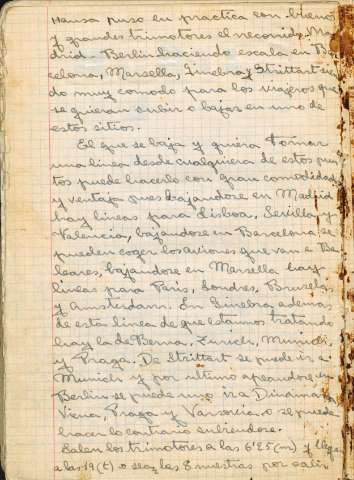 Hansa puso en practica con buenos
y grandes trimotores el recorrido Ma-
drid-Berlin haciendo escala en Bar
celona, Marsella, Ginebra y Strittart sien
do muy comodo para los viajeros que
se quieran subir o bajar en uno de
estos sitios.
El que se baja y quiera tomar
una linea desde cualquiera de estos pun
tos puede hacerlo con gran comodidad
y ventaja pues bajandose en Madrid
hay lineas para Lisboa, Sevilla y
Valencia, bajandose en Barcelona se
pueden coger los aviones que van a Ba
leares, bajandose en Marsella hay
lineas para Paris, Londres, Bruselas,
y Amsterdam. En Ginebra ademas
de esta linea de que estamos tratando
hay la de Berna, Zurich, Munich,
y Praga. De Strittart se puede ir a
Munich y por ultimo apeandose en
Berlin se puede uno ir a Dinamarca
Viena, Praga y Varsovia o se puede
hacer lo contrario subiendose.
Salen los trimotores a las 6'25 (m) y llegan
a las 19 (t) o sea, las 8 nuestras por salir